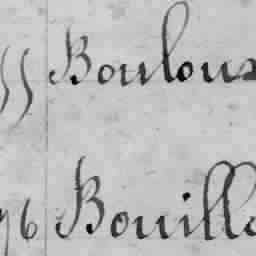 55 Boulous
76 Bouille